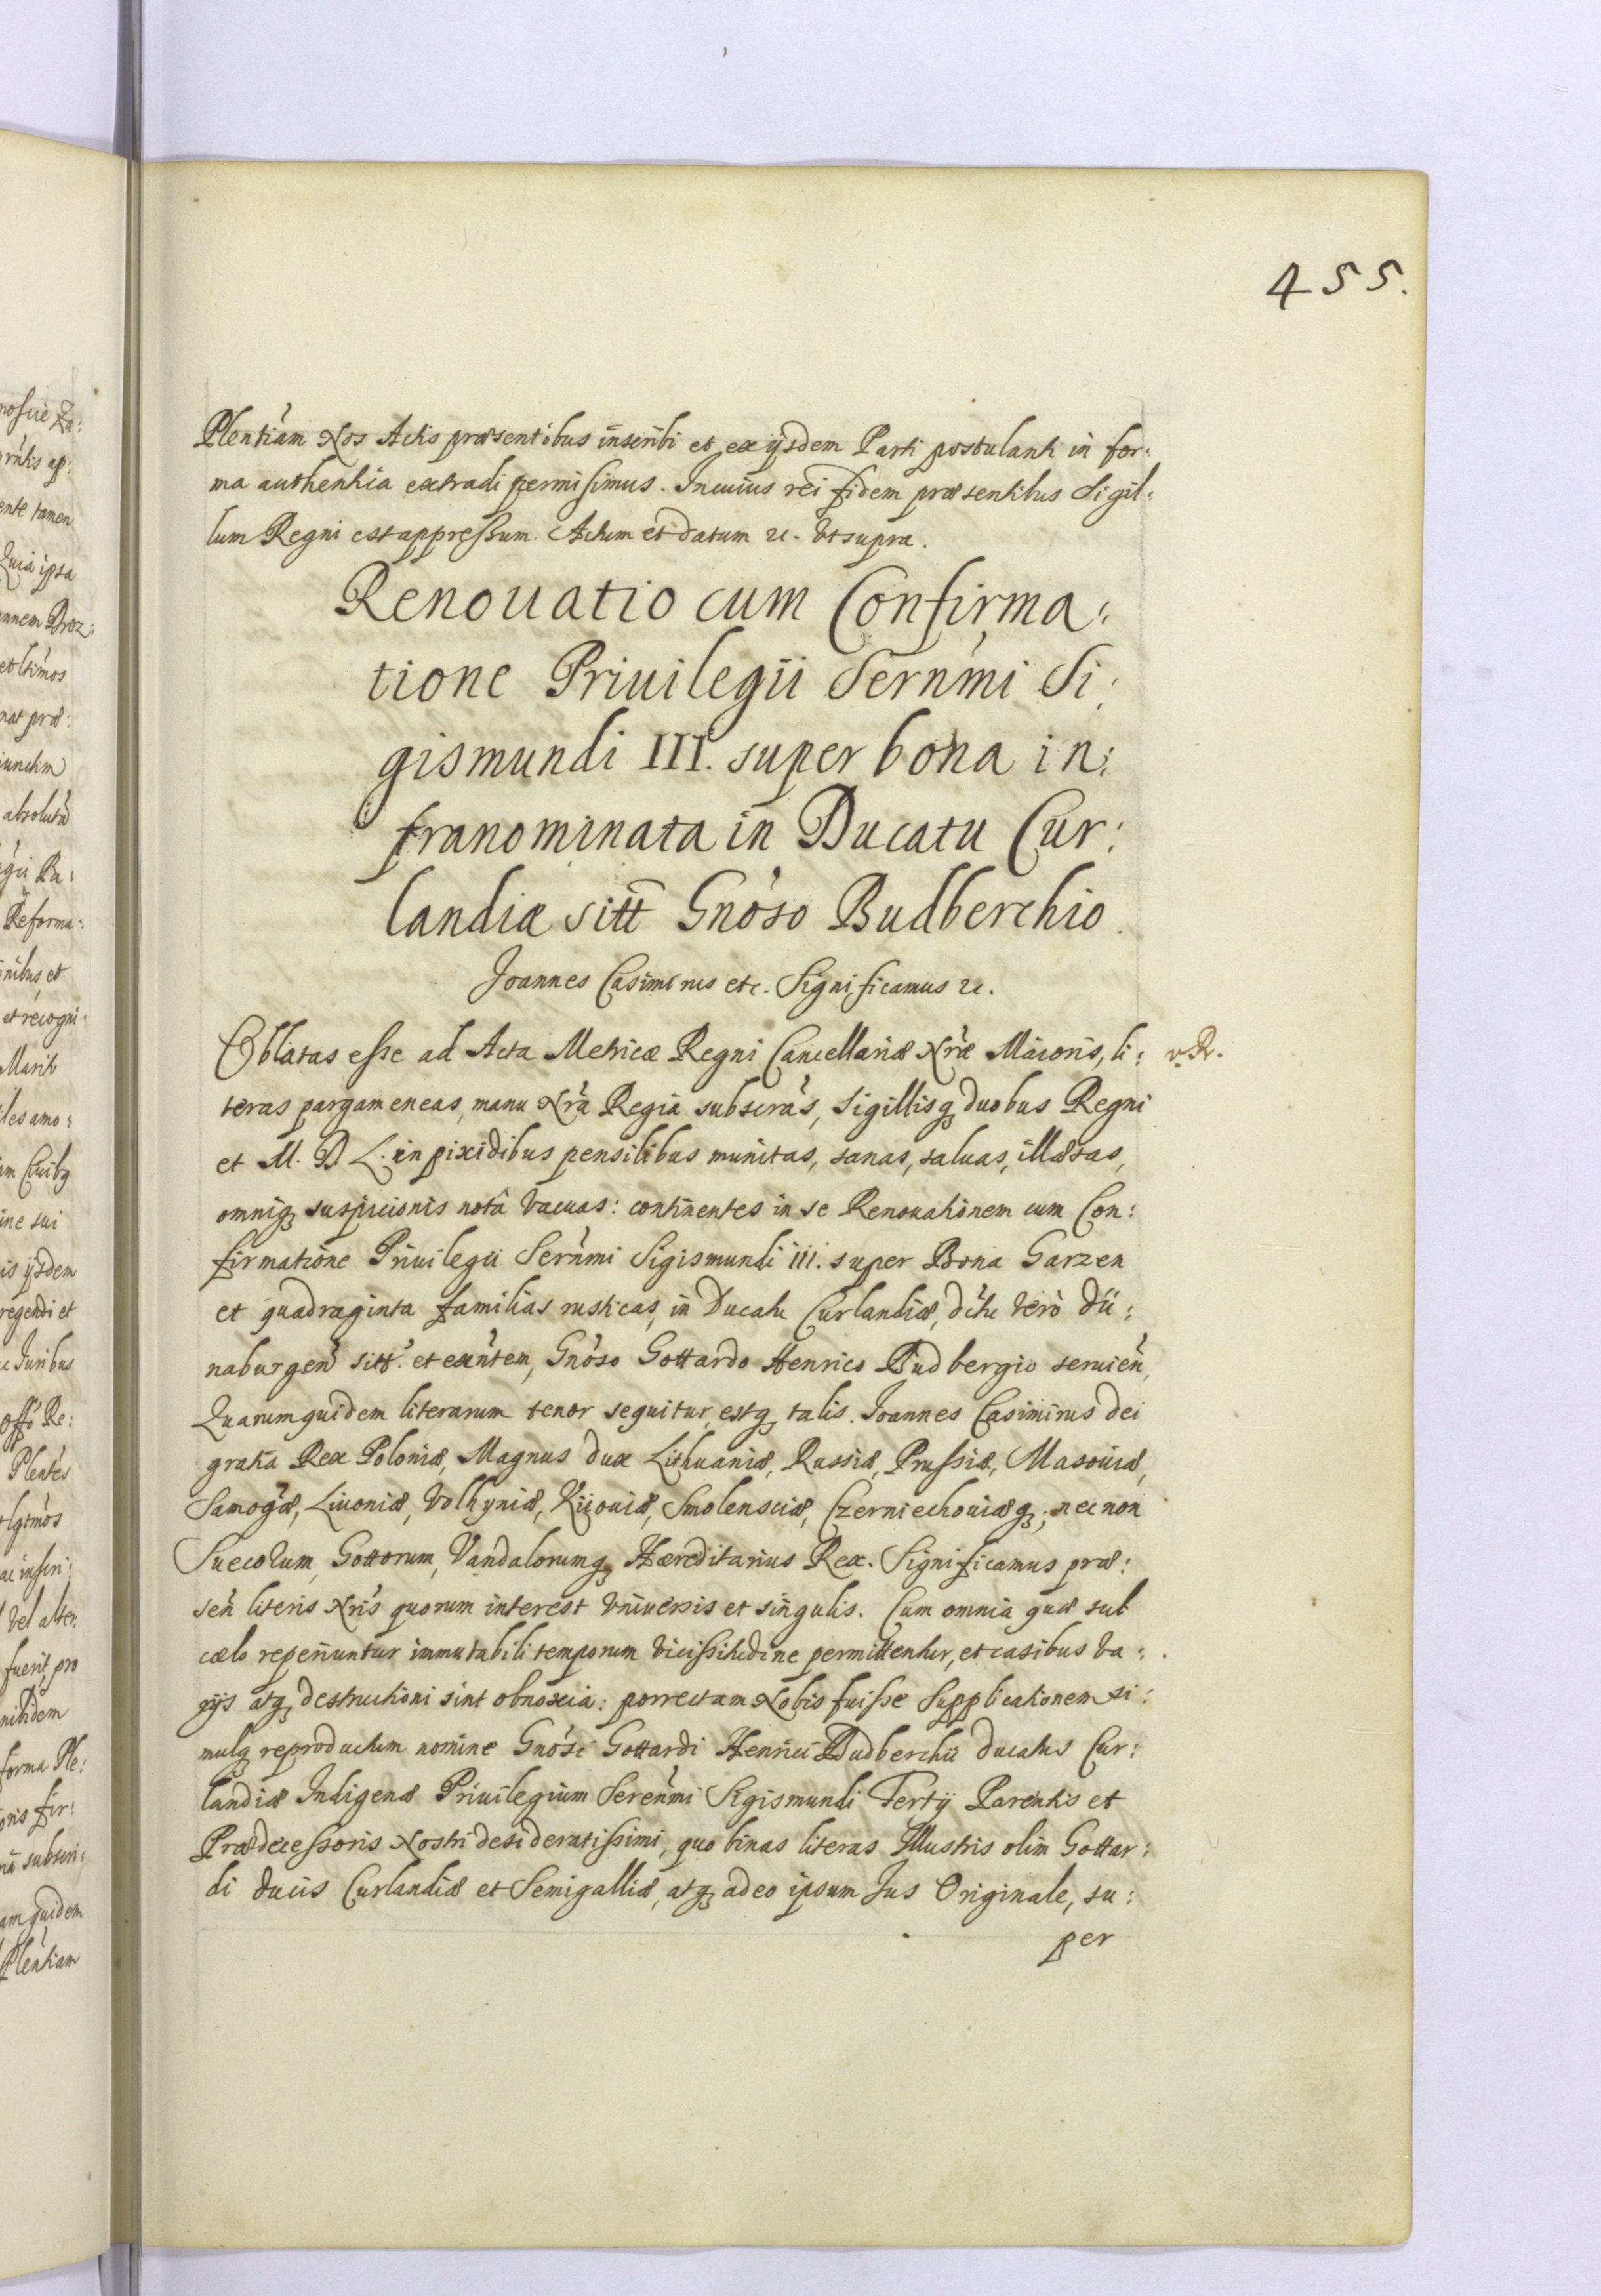 455.
Plentiam Nos Actis præsentibus inseribi et ex ijsdem Parti postulanti in for:
ma authentica extradi permisimus. In cuius rei fidem præsentibus Sigil:
lum Regni est appressum. Actum et datum etc. Vt supra.
Renouatio cum Confirma:
tione Priuilegii Sernmi Si:
gismundi III. super bona in:
franominata in Ducatu Cur:
landiæ sitt Gnoso Budberchio.
Joannes Casimirus etc. Significamus etc.
Oblatas esse ad Acta Metricæ Regni Cancellariæ Nræ Maioris, li:
teras pargameneas, manu Nra Regia subscras, Sigillisq duobus Regni
et M. D. L. in pixidibus pensilibus munitas, sanas, saluas, illæsas,
omniq suspicionis notâ vacuas: continentes in se Renouationem cum Con:
firmatione Priuilegii Sernmi Sigismundi III. super Bona Garzen
et quadraginta familias rusticas, in Ducatu Curlandiæ, dctu verò Dü:
naburgen sitt. et exntem, Gnoso Gottardo Henrico Budbergio seruien,
Quarumquidem literarum tenor sequitur estq talis. Joannes Casimirus dei
gratia Rex Poloniæ, Magnus dux Lithuaniæ, Russiæ, Prussiæ, Masouiæ,
Samogæ, Liuoniæ, Volhyniæ, Kijouiæ, Smolensciæ, Czerniechouiæq; nec non
Suecorum, Gottorum, Vandalorumq Hæreditarius Rex. Significamus præ:
sen literis Nris quorum interest vniuersis et singulis. Cum omnia quæ sub
cælo reperiuntur immutabili temporum vicissitudine permittentur, et casibus va:
rijs atq destructioni sint obnoxia: porrectam Nobis fuisse Supplicationem si:
mulq reproductum nomine Gnosi Gottardi Henrici Budberchii ducatus Cur:
landiæ Indigenæ Priuilegium Serenmi Sigismundi Tertij Parentis et
Prædecessoris Nostri desideratissimi, quo binas literas Illustris olim Gottar:
di ducis Curlandiæ et Semigalliæ, atq adeo ipsum Jus Originale, su:
per